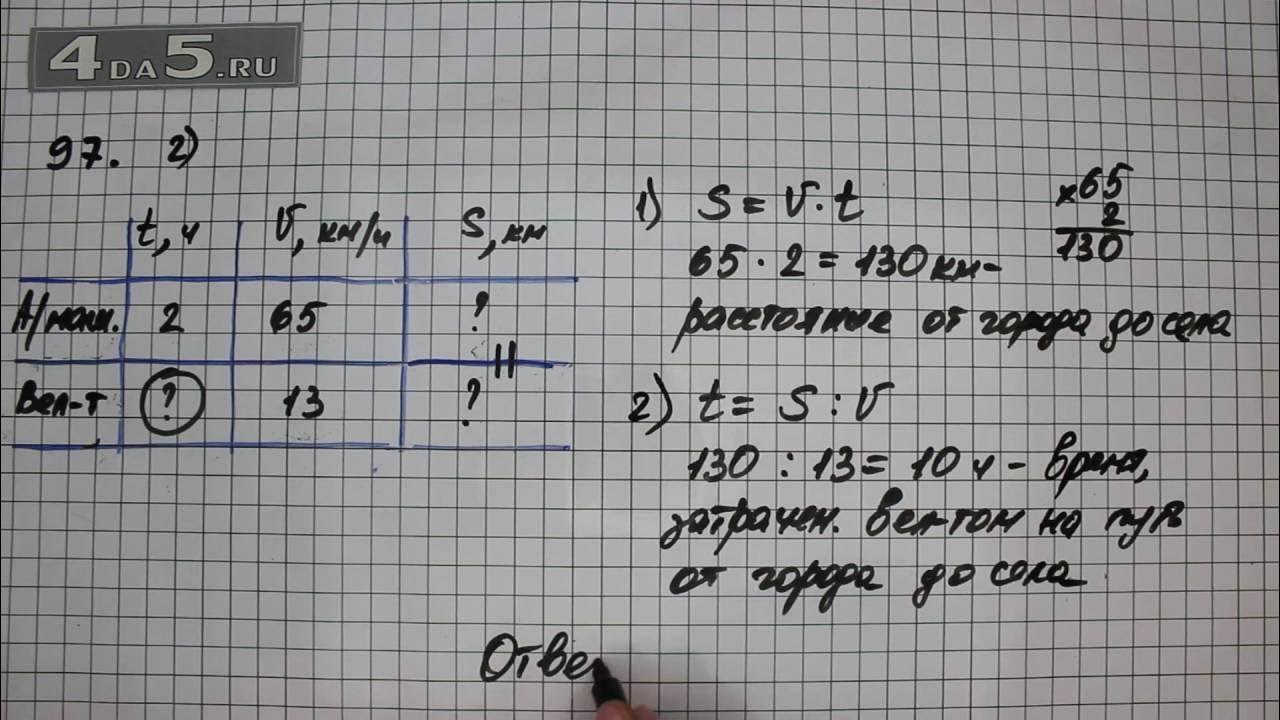 4DA5.RU
97. 2)
t, ч V, км/ч S, км
А/маш. 2 65 ?
Вел-т ? 13 ?
1) S = V · t
65 · 2 = 130 км -
расстояние от города до села
× 65
2
130
2) t = S : V
130 : 13 = 10 ч - время,
затрачен. вел-том на путь
от города до села
Отве